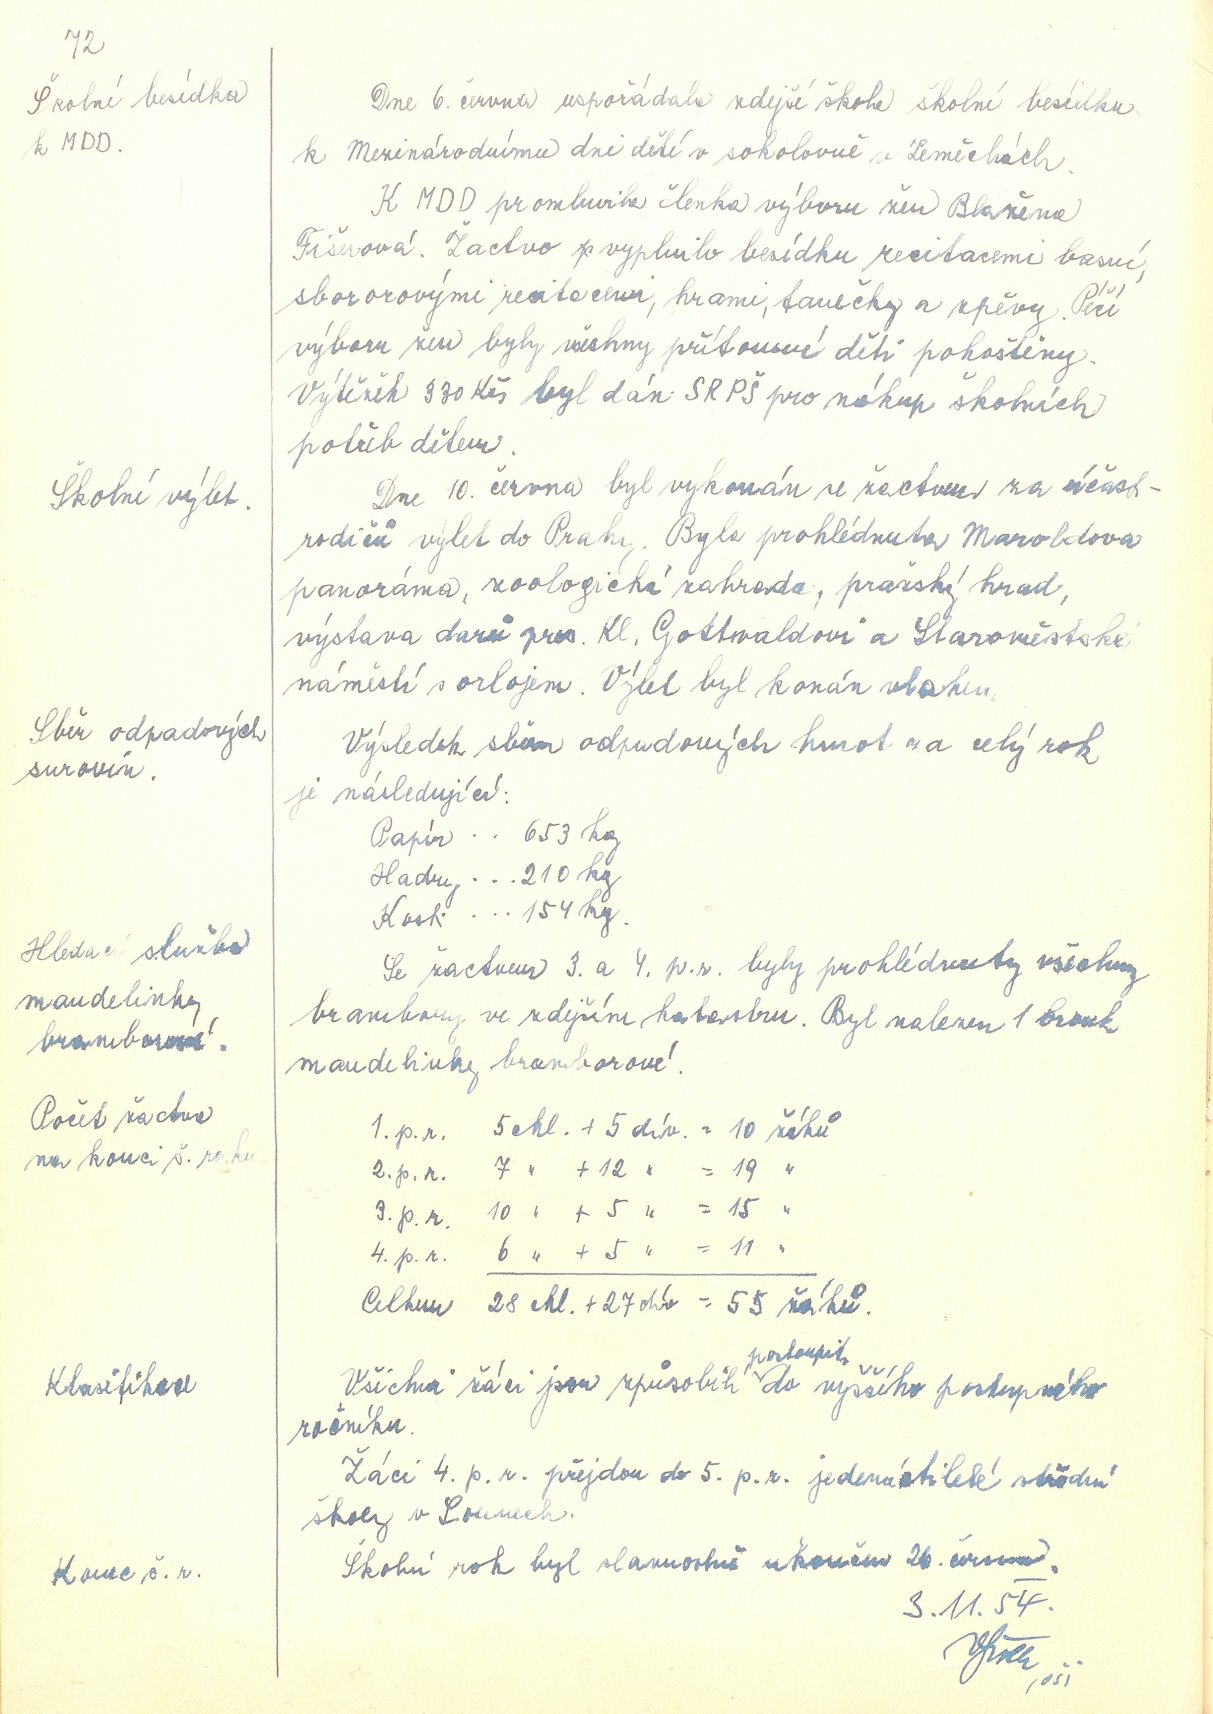 72
Školní besídka
k MDD.
Dne 6. června uspořádala zdejší škola školní besídku
k Mezinárodnímu dni dětí v sokolovně v Zeměchách.
K MDD promluvila členka výboru žen Blažena
Fišerová. Žactvo vyplnilo besídku recitacemi básní,
sbororovými recitacemi, hrami, tanečky a zpěvy. Péčí
výboru žen byly všechny přítomné děti pohoštěny.
Výtěžek 330 Kčs byl dán SRPŠ pro nákup školních
potřeb dětem.
Školní výlet.
Dne 10. června byl vykonán se žactvem za účast-
rodičů výlet do Prahy. Byla prohlédnuta Maroldova
panoráma, zoologická zahrada, pražský hrad,
výstava darů pres. Kl. Gottwaldovi a Staroměstské
náměstí s orlojem. Výlet byl konán vlakem.
Sběr odpadových
surovin.
Výsledek sběru odpadových hmot za celý rok
je následující:
Papír .. 653 kg
Hadry ... 210 kg
Kosti ... 154 kg.
Hledací služba
mandelinky
bramborové.
Se žactvem 3. a 4. p. r. byly prohlédnuty všechny
brambory ve zdejším katastru. Byl nalezen 1 brouk
mandelinky bramborové.
Počet žactva
na konci š. roku
1. p. r. 5 chl. + 5 dív. = 10 žáků
2. p. r. 7 " + 12 " = 19 "
3. p. r. 10 " + 5 " = 15 "
4. p. r. 6 " + 5 " = 11 "
Celkem 28 chl. + 27 dív = 55 žáků.
Klasifikace
Všichni žáci jsou způsobilí postoupit do vyššího postupného
ročníku.
Žáci 4. p. r. přejdou do 5. p. r. jedenáctileté střední
školy v Lounech.
Konec š. r.
Školní rok byl slavnostně ukončen 26. června.
3. 11. 54.